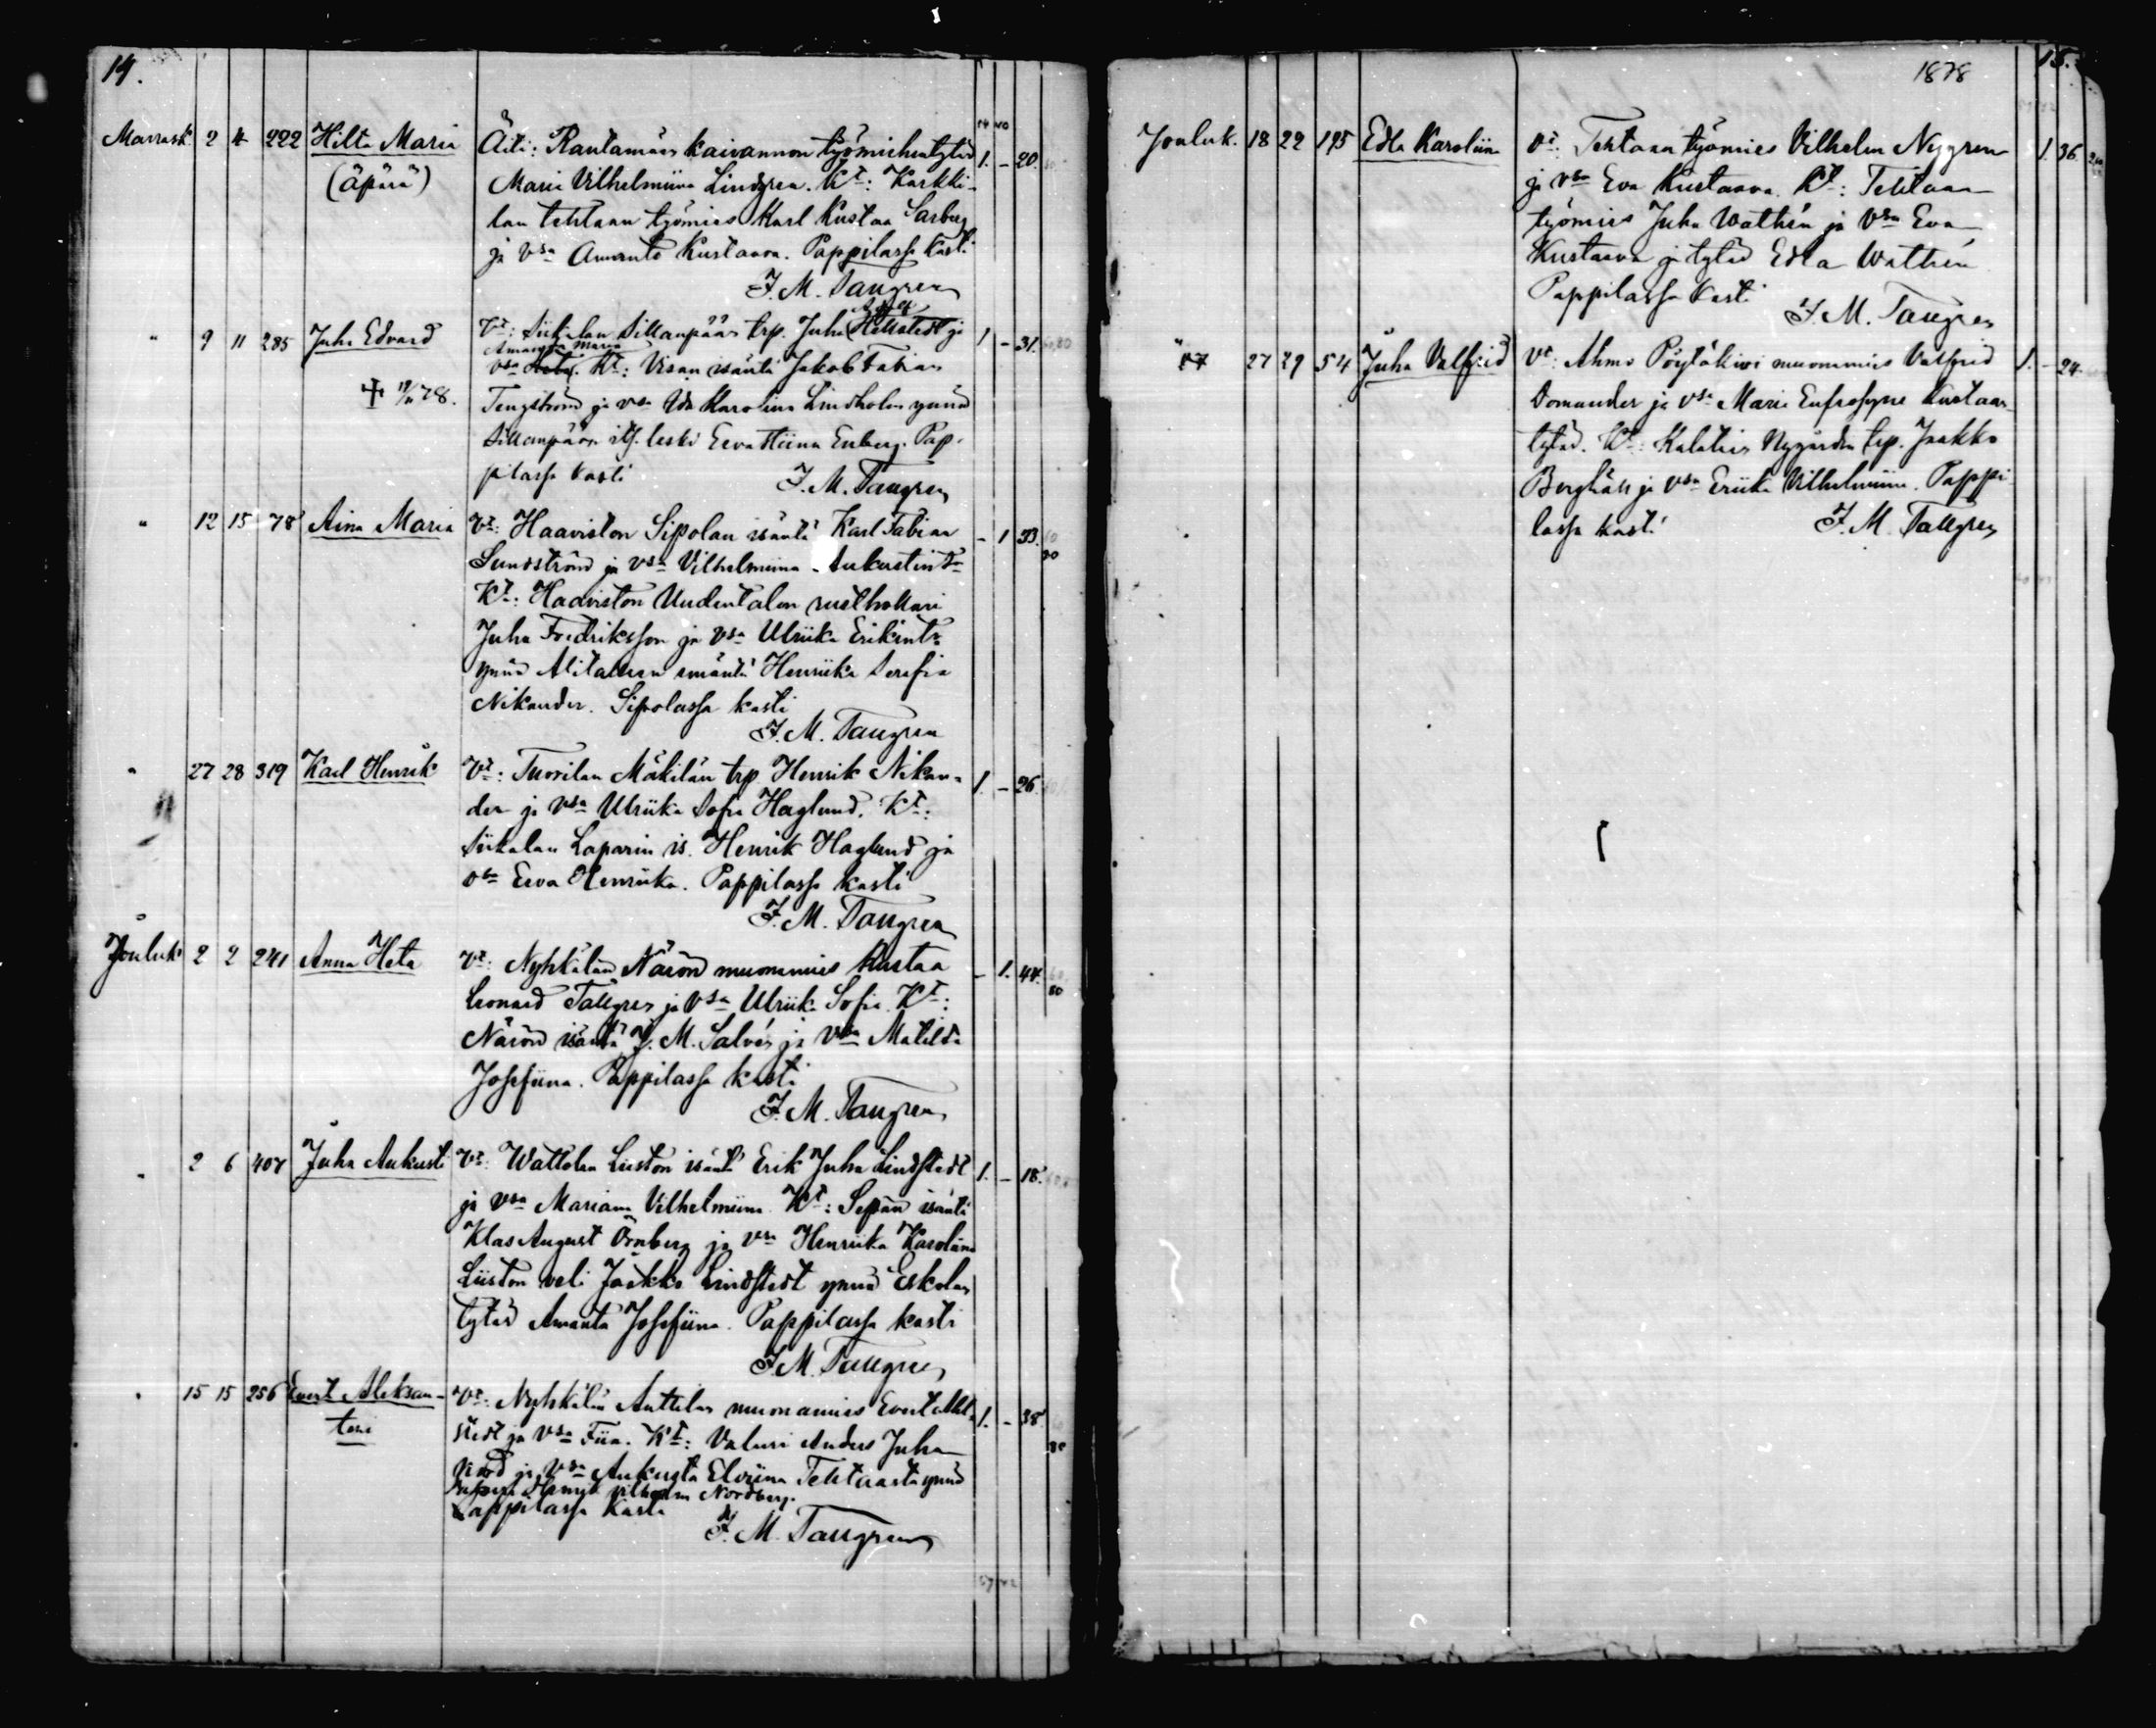 14.
Marrask. 2 4 222 Hilta Maria Äiti: Rautamäen kaivannon työmiehentytär 1. - 20.
(äpärä) Maria Vilhelmiina Lindgren. Kt: Karkki-
lan tehtaan työmies Karl Kustaa Sarberg
ja vsa Amanta Kustaava. Pappilassa kasti
F. M. Tallgren
" 9 11 285 Juho Edvard Vt: Siikalan Sillanpään trp. Juha ja 1 - 31.
Amanda Maria
vsa Kt: Visan isäntä Jakob Fabian
78. Tengström ja vsa Ida Karolina Lindholm ynnä
Sillanpään its. leski Eeva Stiina Enberg. Pap-
pilassa kasti F. M. Tallgren
" 12 15 78 Aina Maria Vt: Haaviston Sipolan isäntä Karl Fabian - 1 33.
Sundström ja vsa Vilhelmiina Aukustint.
Kt: Haaviston Uudentalon rusthollari
Juha Fredriksson ja vsa Ulriika Erikint.
ynnä Alitalon emäntä Henriika Serafia
Nikander. Sipolassa kasti
F. M. Tallgren
" 27 28 319 Karl Henrik Vt: Tuorilan Mäkilän trp. Henrik Nikan- 1. - 26.
der ja vsa Ulriika Sofia Haglund. Kt:
Siikalan Laparin is. Henrik Haglund ja
vsa Eeva Henriika. Pappilassa kasti
F. M. Tallgren
Jouluk. 2 2 241 Anna Heta Vt: Nyhkälän Närön muonamies Kustaa - 1. 44.
Leonard Tallgren ja vsa Ulriika Sofia. Kt:
Närön isäntä J. M. Salvén ja vsa Matilda
Josefiina. Pappilassa kasti
F. M. Tallgren
" 2 6 407 Juha Aukusti Vt: Wattolan Liiston isäntä Erik Juha Lindstedt 1. - 18.
ja vsa Mariana Vilhelmiina. Kt: Sepän isäntä
Klas August Örnberg ja vsa Henriika Karoliina
Liiston veli Jaakko Lindstedt ynnä Eskolan
tytär Amanta Josefiina. Pappilassa kasti
F. M. Tallgren
" 15 15 256 Evert Aleksan- Vt: Nyhkälän Anttilan muonamies Evert Ahl- 1. - 38.
teri stedt ja vsa Fiia. Kt: Valuri Anders Juha
Nord ja vsa Aukusta Elviina Tehtaasta ynnä
Vilhelm Nordberg.
Pappilassa kasti
F. M. Tallgren
1878 15.
Jouluk. 18 22 195 Edla Karoliina Vt: Tehtaan työmies Vilhelm Nygren 1. 36.
ja vsa Eva Kustaava. Kt: Tehtaan
työmies Juha Wathén ja vsa Eva
Kustaava ja tytär Edla Wathén
Pappilassa kasti
F. M. Tallgren
" 27 29 54 Juha Valfrid Vt: Ahmo Pöytäkiven muonamies Valfrid 1. - 24.
Domander ja vsa Maria Eufrosyne Kustaan-
tytär. Kt: Kalatien Nygårdin trp. Jaakko
Berghäll ja vsa Eriika Vilhelmiina. Pappi-
lassa kasti F. M. Tallgren